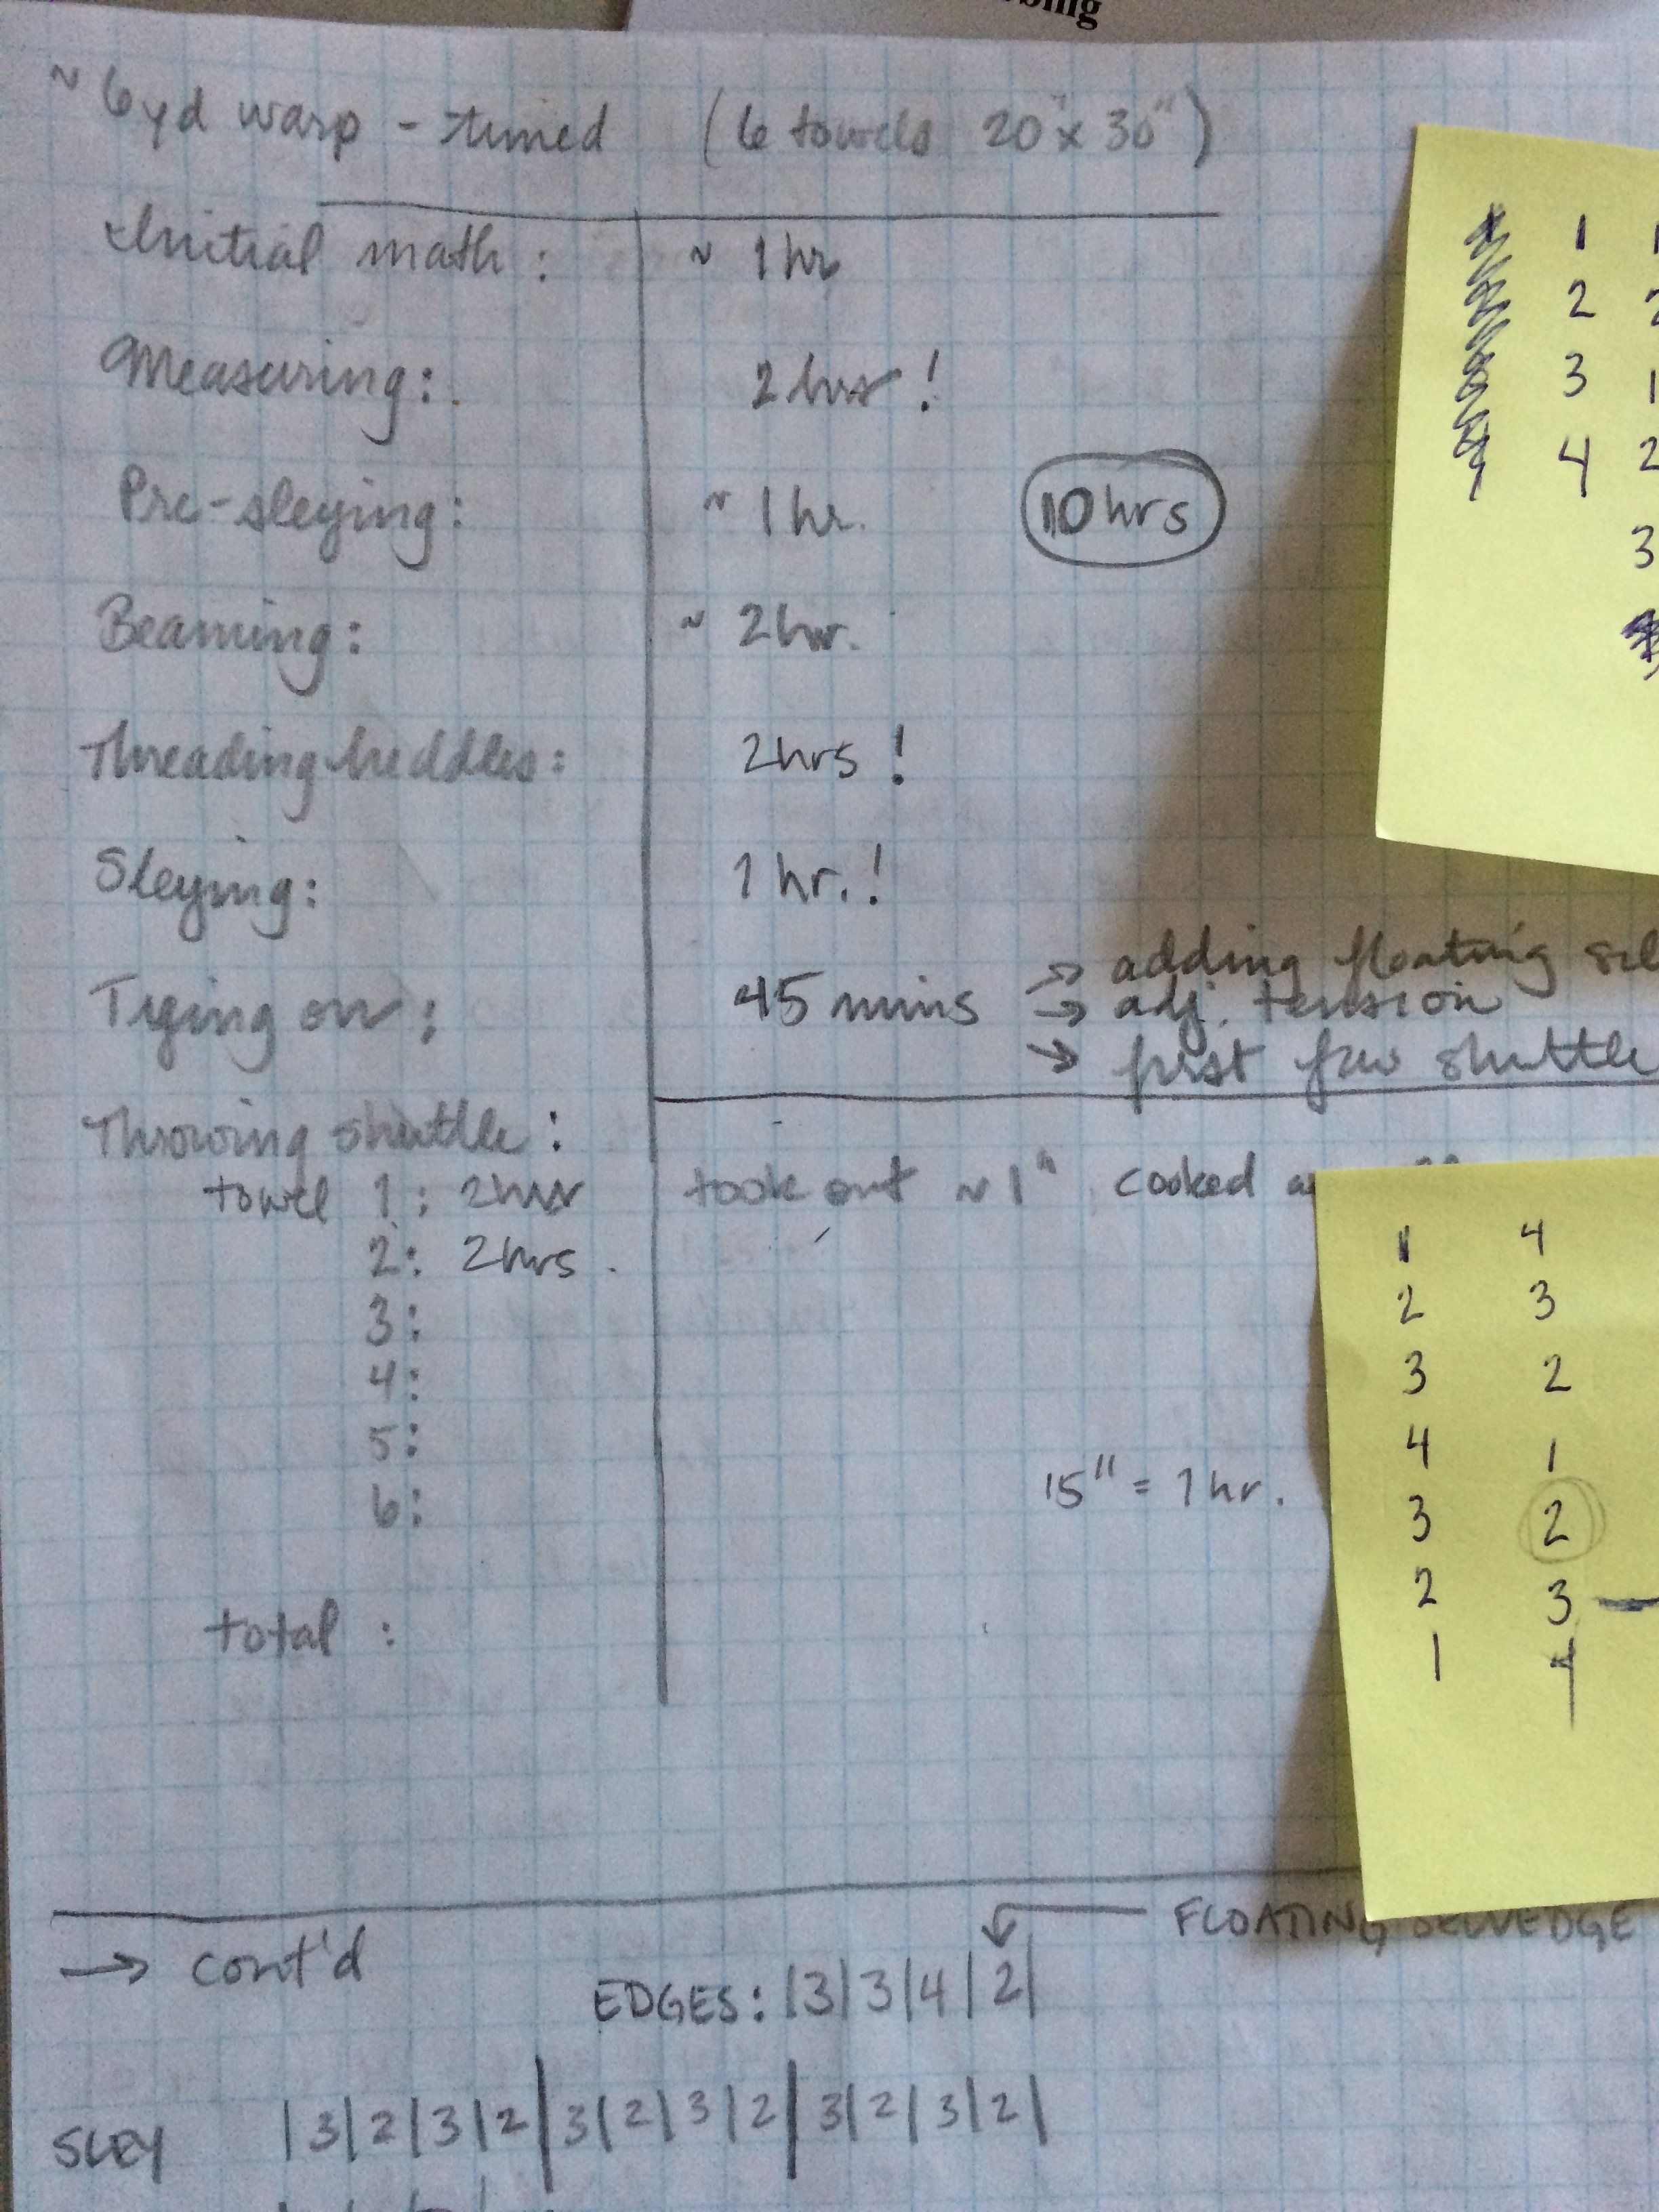 ~ 6yd warp - timed (6 towels 20" x 30")
Initial math : ~ 1 hr
Measuring : 2 hrs !
Pre-sleying : ~ 1 hr. 10 hrs
Beaming : ~ 2 hr.
Threading heddles : 2 hrs !
Sleying : 1 hr. !
→ adding floating
Tying on : 45 mins → adj. tension
→ first few shuttle
Throwing shuttle :
towel 1 : 2 hrs took out ~ 1" cooked
2 : 2 hrs.
3 :
4 :
5 :
6 :
15" = 1 hr.
total :
→ cont'd
FLOATING SELVEDGE
EDGES : |3|3|4|2|
SLEY |3|2|3|2|3|2|3|2|3|2|3|2|
1 1
2 2
3 1
4 2
3
1 4
2 3
3 2
4 1
3 2
2 3 —
1 4